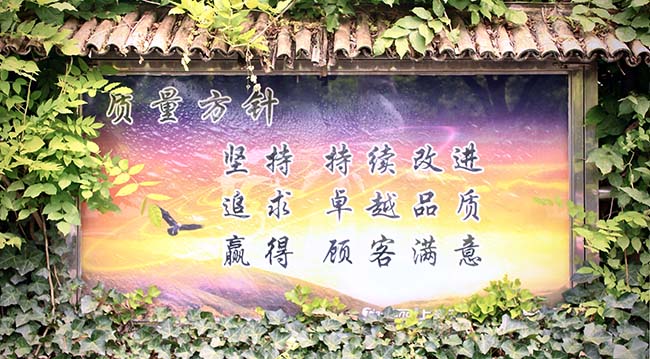 质量方针
坚持 持续改进
追求 卓越品质
赢得 顾客满意